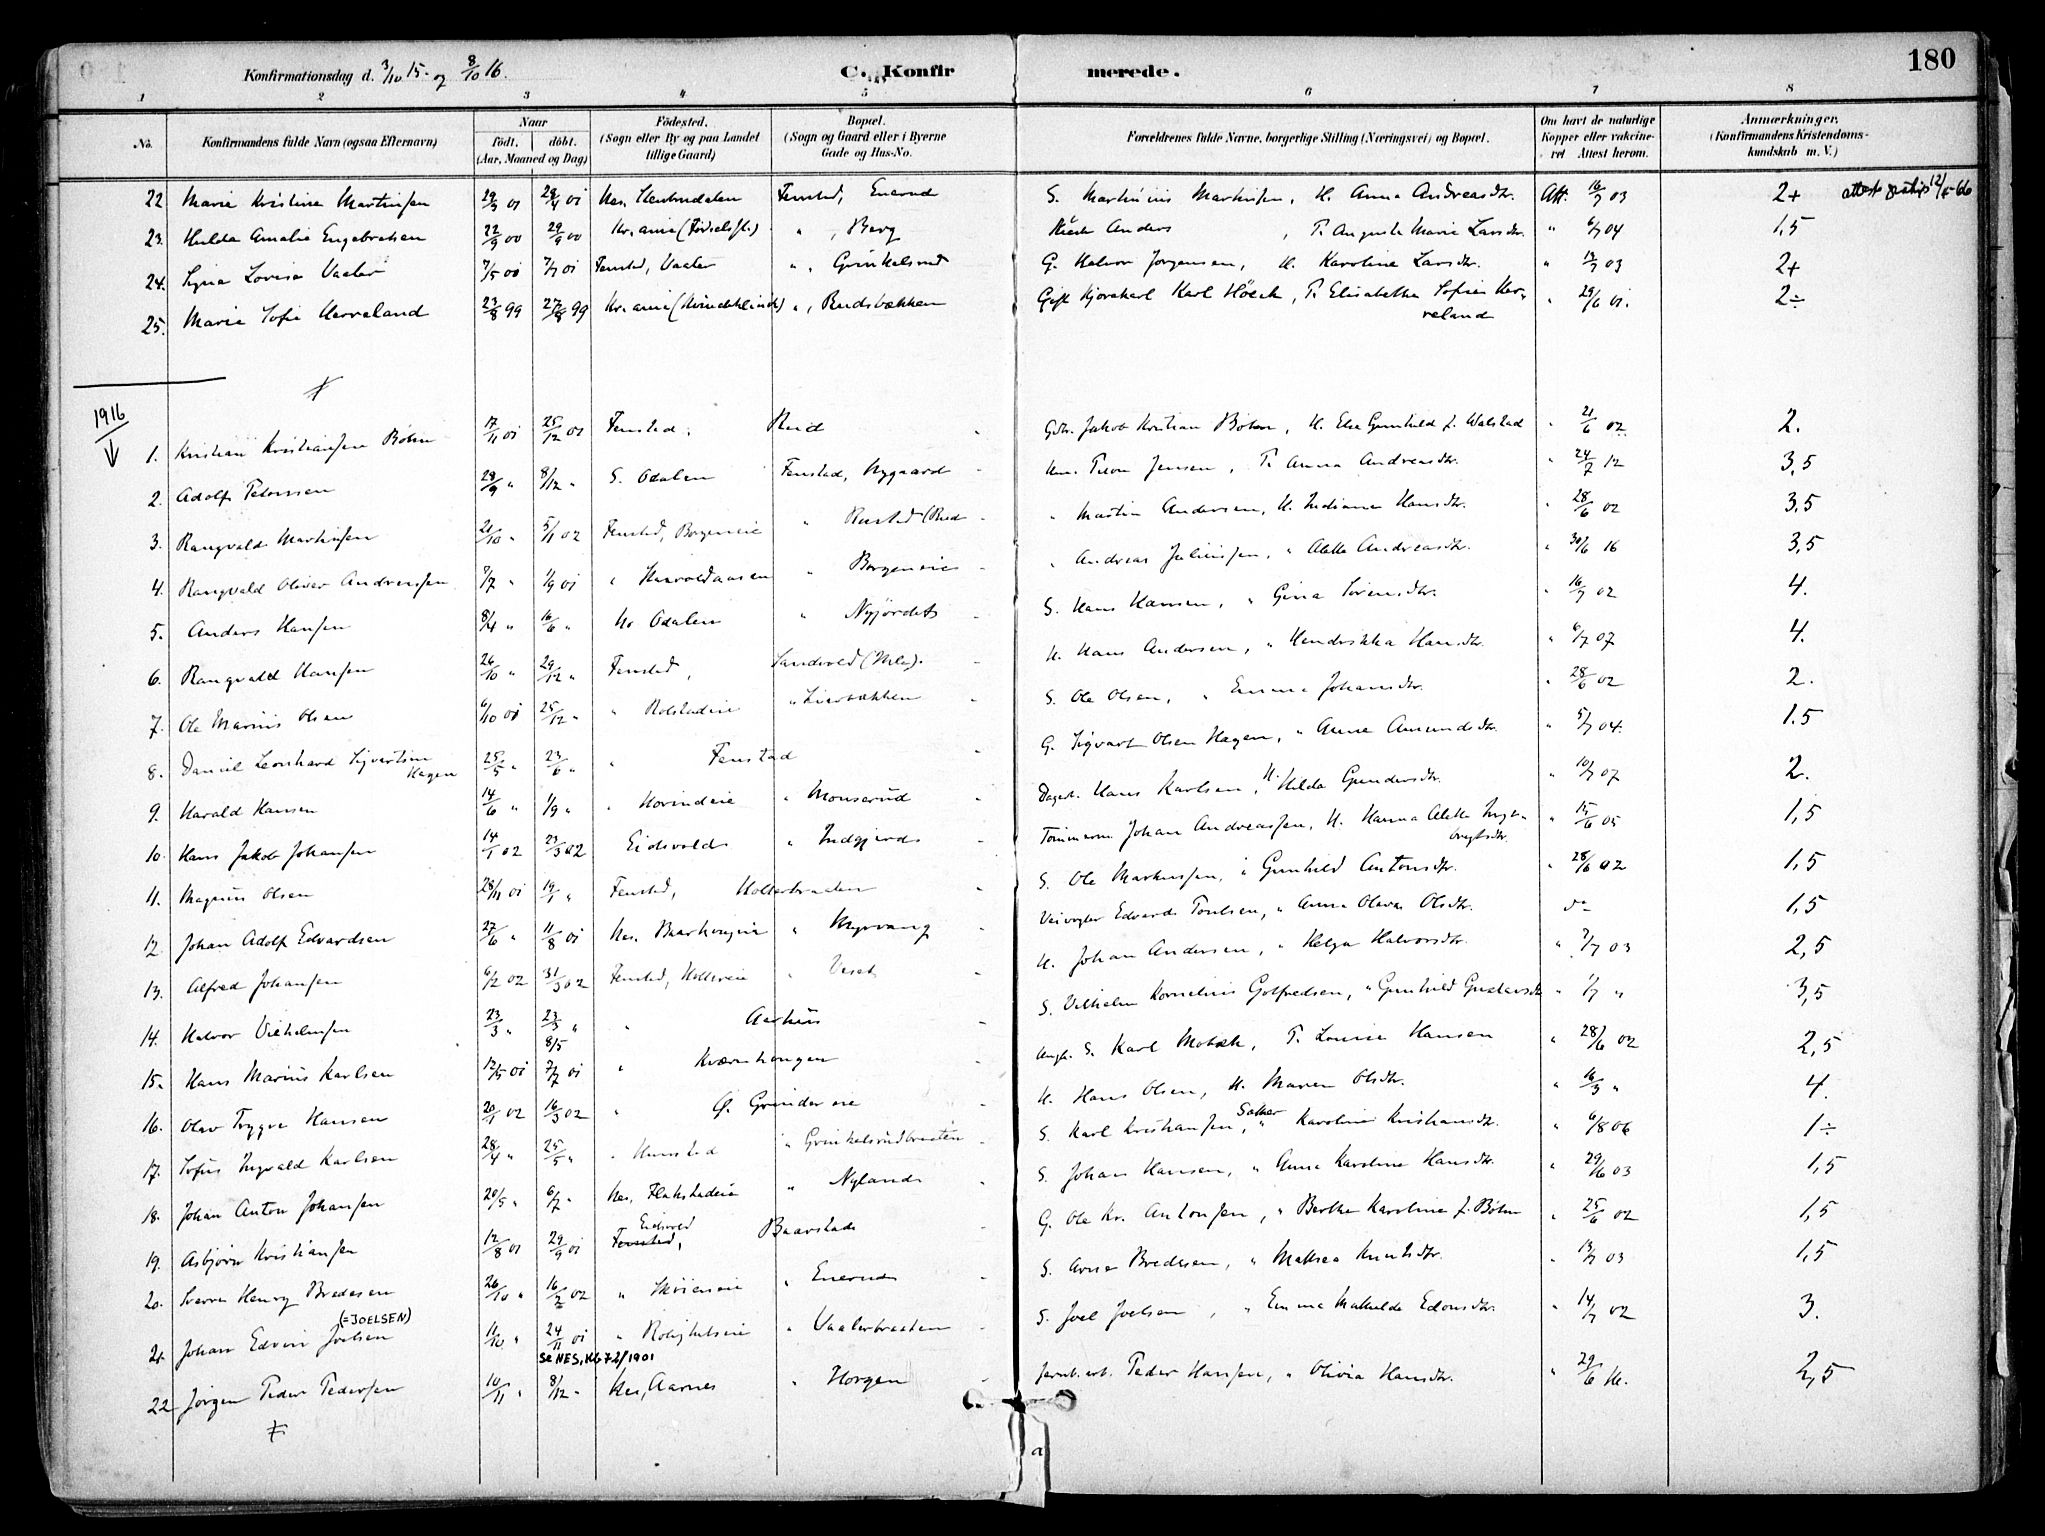 180
Konfirmationsdag d. 3/10 15. og 8/10 16.
C. Konfirmerede.
1 2 3 4 5 6 7 8
No. Konfirmandens fulde Navn (ogsaa Efternavn) Naar født. døbt. (Aar, Maaned og Dag) Fødested. (Sogn eller By og paa Landet tillige Gaard) Bopæl. (Sogn og Gaard eller i Byerne Gade og Hus-No. Forældrenes fulde Navne, borgerlige Stilling (Næringsvei) og Bopæl. Om havt de naturlige Kopper eller vaccineret Attest herom. Anmærkninger. (Konfirmandens Kristendomskundskab m. V.)
22 Marie Kristine Martinsen 29/3 01 28/4 01 Nes, Fenstad, Enerud S. Martinius Martinsen, H. Anna Andreasdtr. Att. 16/7 03 2+ 12/5-66
23. Hulda Amalie Engebretsen 22/9 00 29/9 00 Kr.ania (Fødselsst.) " , Berg Anders , P. Auguste Marie Larsdtr. " 6/7 04 1,5
24. Signe Lovise Vaaler 7/5 00 7/7 01 Fenstad, Vaaler " , Grinkelsrud G. Halvor Jørgensen, H. Karoline Larsdtr. " 14/7 03 2+
25. Marie Sofie Herreland 23/8 99 27/8 99 Kr.ania (Kvindeklinik) " , Rudsbækken Gift Kjørekarl Karl Höeck, P. Elisabeth Sofie Herreland " 29/6 01. 2÷
1916
1. Kristian Kristiansen Bøhn 17/11 01 25/12 01 Fenstad, Rud Gdbr. Jakob Kristian Bøhn, H. Else Gunhild f. Walstad " 21/6 02 2.
2. Adolf Petersen 29/9 " 8/12 " S. Odalen Fenstad, Nygaard Jensen, P. Anna Andreasdtr. " 24/7 12 3,5
3. Rangvald Martinsen 21/10 " 5/1 02 Fenstad, Borgeneie " Rustad (Rud " Martin Andersen, H. Indiana Hansdtr. " 28/6 02 3,5
4. Rangvald Oliver Andreassen 7/7 " 1/9 01 " Harvoldaasen " Borgeneie " Andreas Juliussen, " Alette Andreasdtr. " 30/6 16 3,5
5. Anders Hansen 8/4 " 16/6 " No Odalen " Nyjordet S. Hans Hansen, " Gina Sørensdtr. " 16/7 02 4.
6. Rangvald Hansen 26/10 " 29/12 " Fenstad, Sandvold (Mlm). H. Hans Andersen, " Hendrikka Hansdtr. " 6/7 07 4.
7. Ole Marius Olsen 6/10 01 25/12 " " Rolstadeie " Lierbækken S. Ole Olsen, " Emma Johansdtr. " 28/6 02 2.
8. Daniel Leonhard Sigvartsen Hagen 25/5 " 23/6 " " Fenstad G. Sigvart Olsen Hagen, " Anne Amundsdtr. " 5/7 04. 1.5
9. Harald Hansen 14/6 " 1/9 " " Hovindeie " Monserud Dagarb. Hans Karlsen, H. Hilda Gundersdtr. " 10/7 07 2.
10. Hans Jakob Johansen 14/1 02 23/3 02 Eidsvold " Indgjerdet Tømmerm. Johan Andreassen, H. Hanna Alette Ingebregtsdtr. " 15/6 05 1,5
11. Magnus Olsen 28/11 01 19/1 " Fenstad, Holterbraaten S. Ole Markussen, " Gunhild Antonsdtr. " 28/6 02 1,5
12. Johan Adolf Edvardsen 27/6 " 11/8 01 Nes, " Myrvang Veivogter Edvard Paulsen, " Anna Olava Olsdtr. do 1,5
13. Alfred Johansen 6/2 02 31/3 02 Fenstad, Holtereie " Veset H. Johan Andersen, " Helga Halvorsdtr. " 7/7 03 2,5
14. Halvor Vilhelmsen 23/3 " 23/3 " 8/5 " Aarhus S. Vilhelm Kornelius Golfredsen, " Gunhild Gustavsdtr " 1/7 " 3,5
15. Hans Marius Karlsen 12/5 01 7/7 01 " Kværnhaugen Ungk. S. Karl Mobæk, P. Louise Hansen " 28/6 02 2,5
16. Olav Trygve Hansen 20/1 02 16/3 02 " G. Grindereie H. Hans Olsen, H. Maren Olsdtr. " 16/3 " 4.
17. Sofus Ingvald Karlsen 28/4 " 25/5 " " Humstad " Grinkelsrudbraaten S. Karl Kristiansen, Sæther " Karoline Kristiansdtr. " 6/8 06 1÷
18. Johan Anton Johansen 20/5 " 6/7 " Nes, Flakstadeie " Nyland S. Johan Hansen, " Anna Karoline Hansdtr. " 29/6 03 1,5
19. Asbjørn Kristiansen 12/8 01 29/9 01 Eidsvold Fenstad, Baarstad G. Ole Kr. Antonsen, " Berthe Karoline f. Bøhn " 25/6 02 1,5
20. Sverre Henry Bredesen 26/10 " 16/2 02 " Skøieneie " Enerud S. Arne Bredesen, " Mathea Knutsdtr. " 13/7 03 1,5
21. Johan Edvin Joelsen (=JOELSEN) 11/10 " 24/11 01 " Rolighetseie " Vaalerbraaten S. Joel Joelsen, " Emma Mathilde Edonsdtr. " 14/7 02 3.
Se NES, Kb 72/1901
22 Jørgen Peder Pedersen 10/11 " 8/12 " Nes, Aarnes " Horgen Jernb.arb. Peder Hansen, " Olivia Hansdtr. " 29/6 16. 2,5